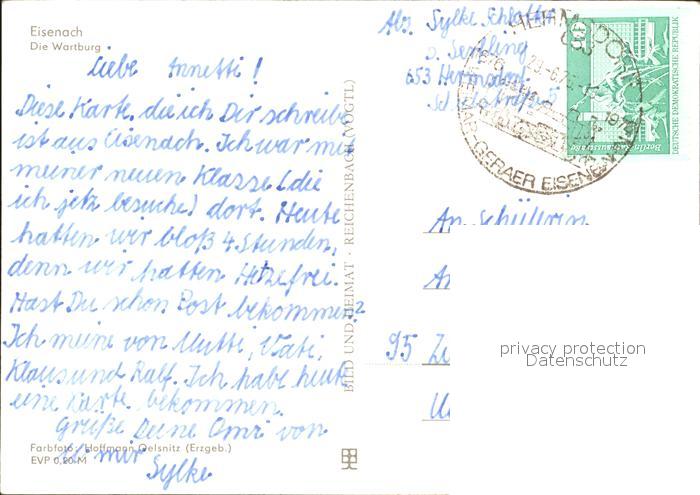 Eisenach
Die Wartburg
Liebe Annetti!
Diese Karte, die ich Dir schreibe
ist aus Eisenach. Ich war mit
meiner neuen Klasse (die
ich jetz besuche) dort. Heute
hatten wir bloß 4 Stunden,
denn wir hatten Hitzefrei.
Hast Du schon Post bekommen?
Ich meine von Mutti, Vati,
Klaus und Ralf. Ich habe heute
eine Karte bekommen.
Grüße Deine Omi von
mir
Sylke
Farbfoto: Hoffmann, Oelsnitz (Erzgeb.)
EVP 0,20 M
BILD UND HEIMAT · REICHENBACH (VOGTL)
Abs. Sylke
653 Hermsdorf
HERMSDORF
653
GERAER EISENBAHN
10
DEUTSCHE DEMOKRATISCHE REPUBLIK
An Schülerin
An
95 Z
privacy protection
Datenschutz